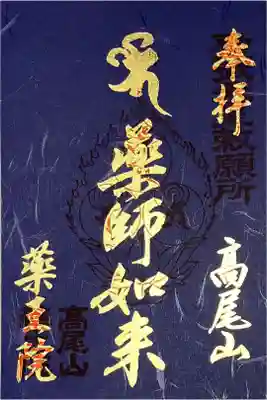 奉拝
敕願所
高尾山
藥師如来
高尾山
藥王院